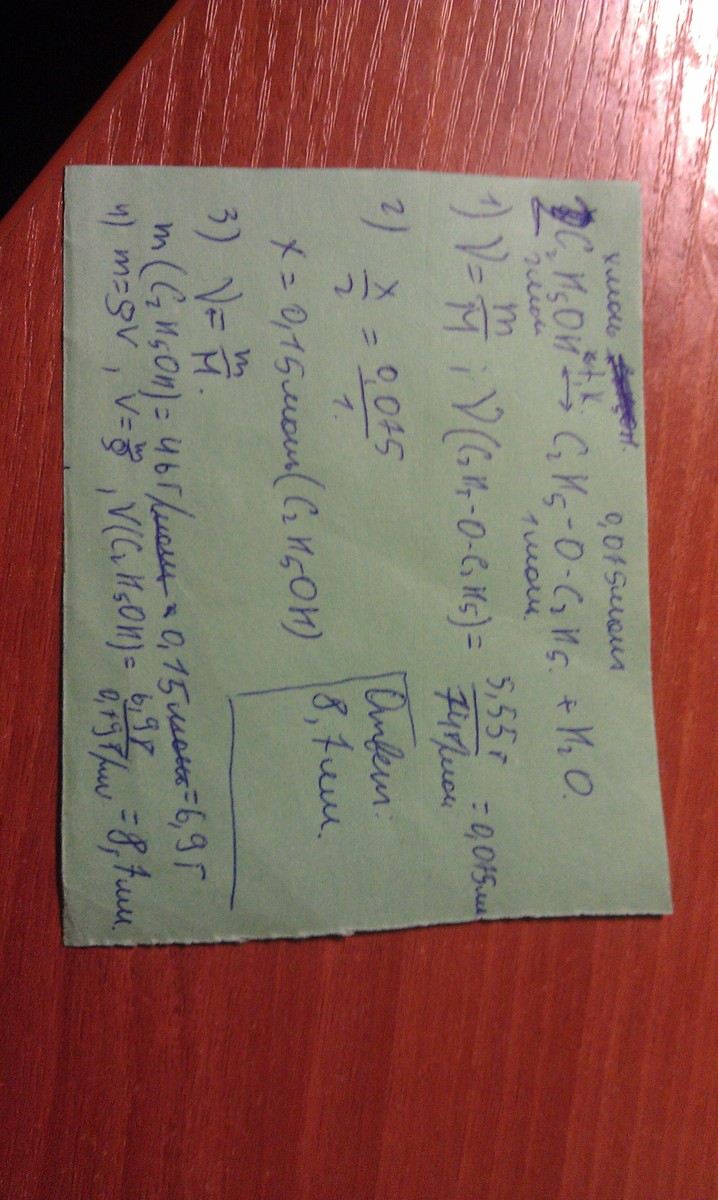 x моль 0,075 моль
2C₂H₅OH →t, к. C₂H₅-O-C₂H₅ + H₂O.
2 моль 1 моль.
1) ν = m/M ; ν(C₂H₅-O-C₂H₅) = 5,55 г / 74 г/моль = 0,075 мль
2) x/2 = 0,075/1.
x = 0,15 моль (C₂H₅OH)
Ответ:
8,7 мл.
3) ν = m/M.
m(C₂H₅OH) = 46 г/моль × 0,15 моль = 6,9 г
4) m = ρV, V = m/ρ, V(C₂H₅OH) = 6,9 г / 0,79 г/мл = 8,7 мл.